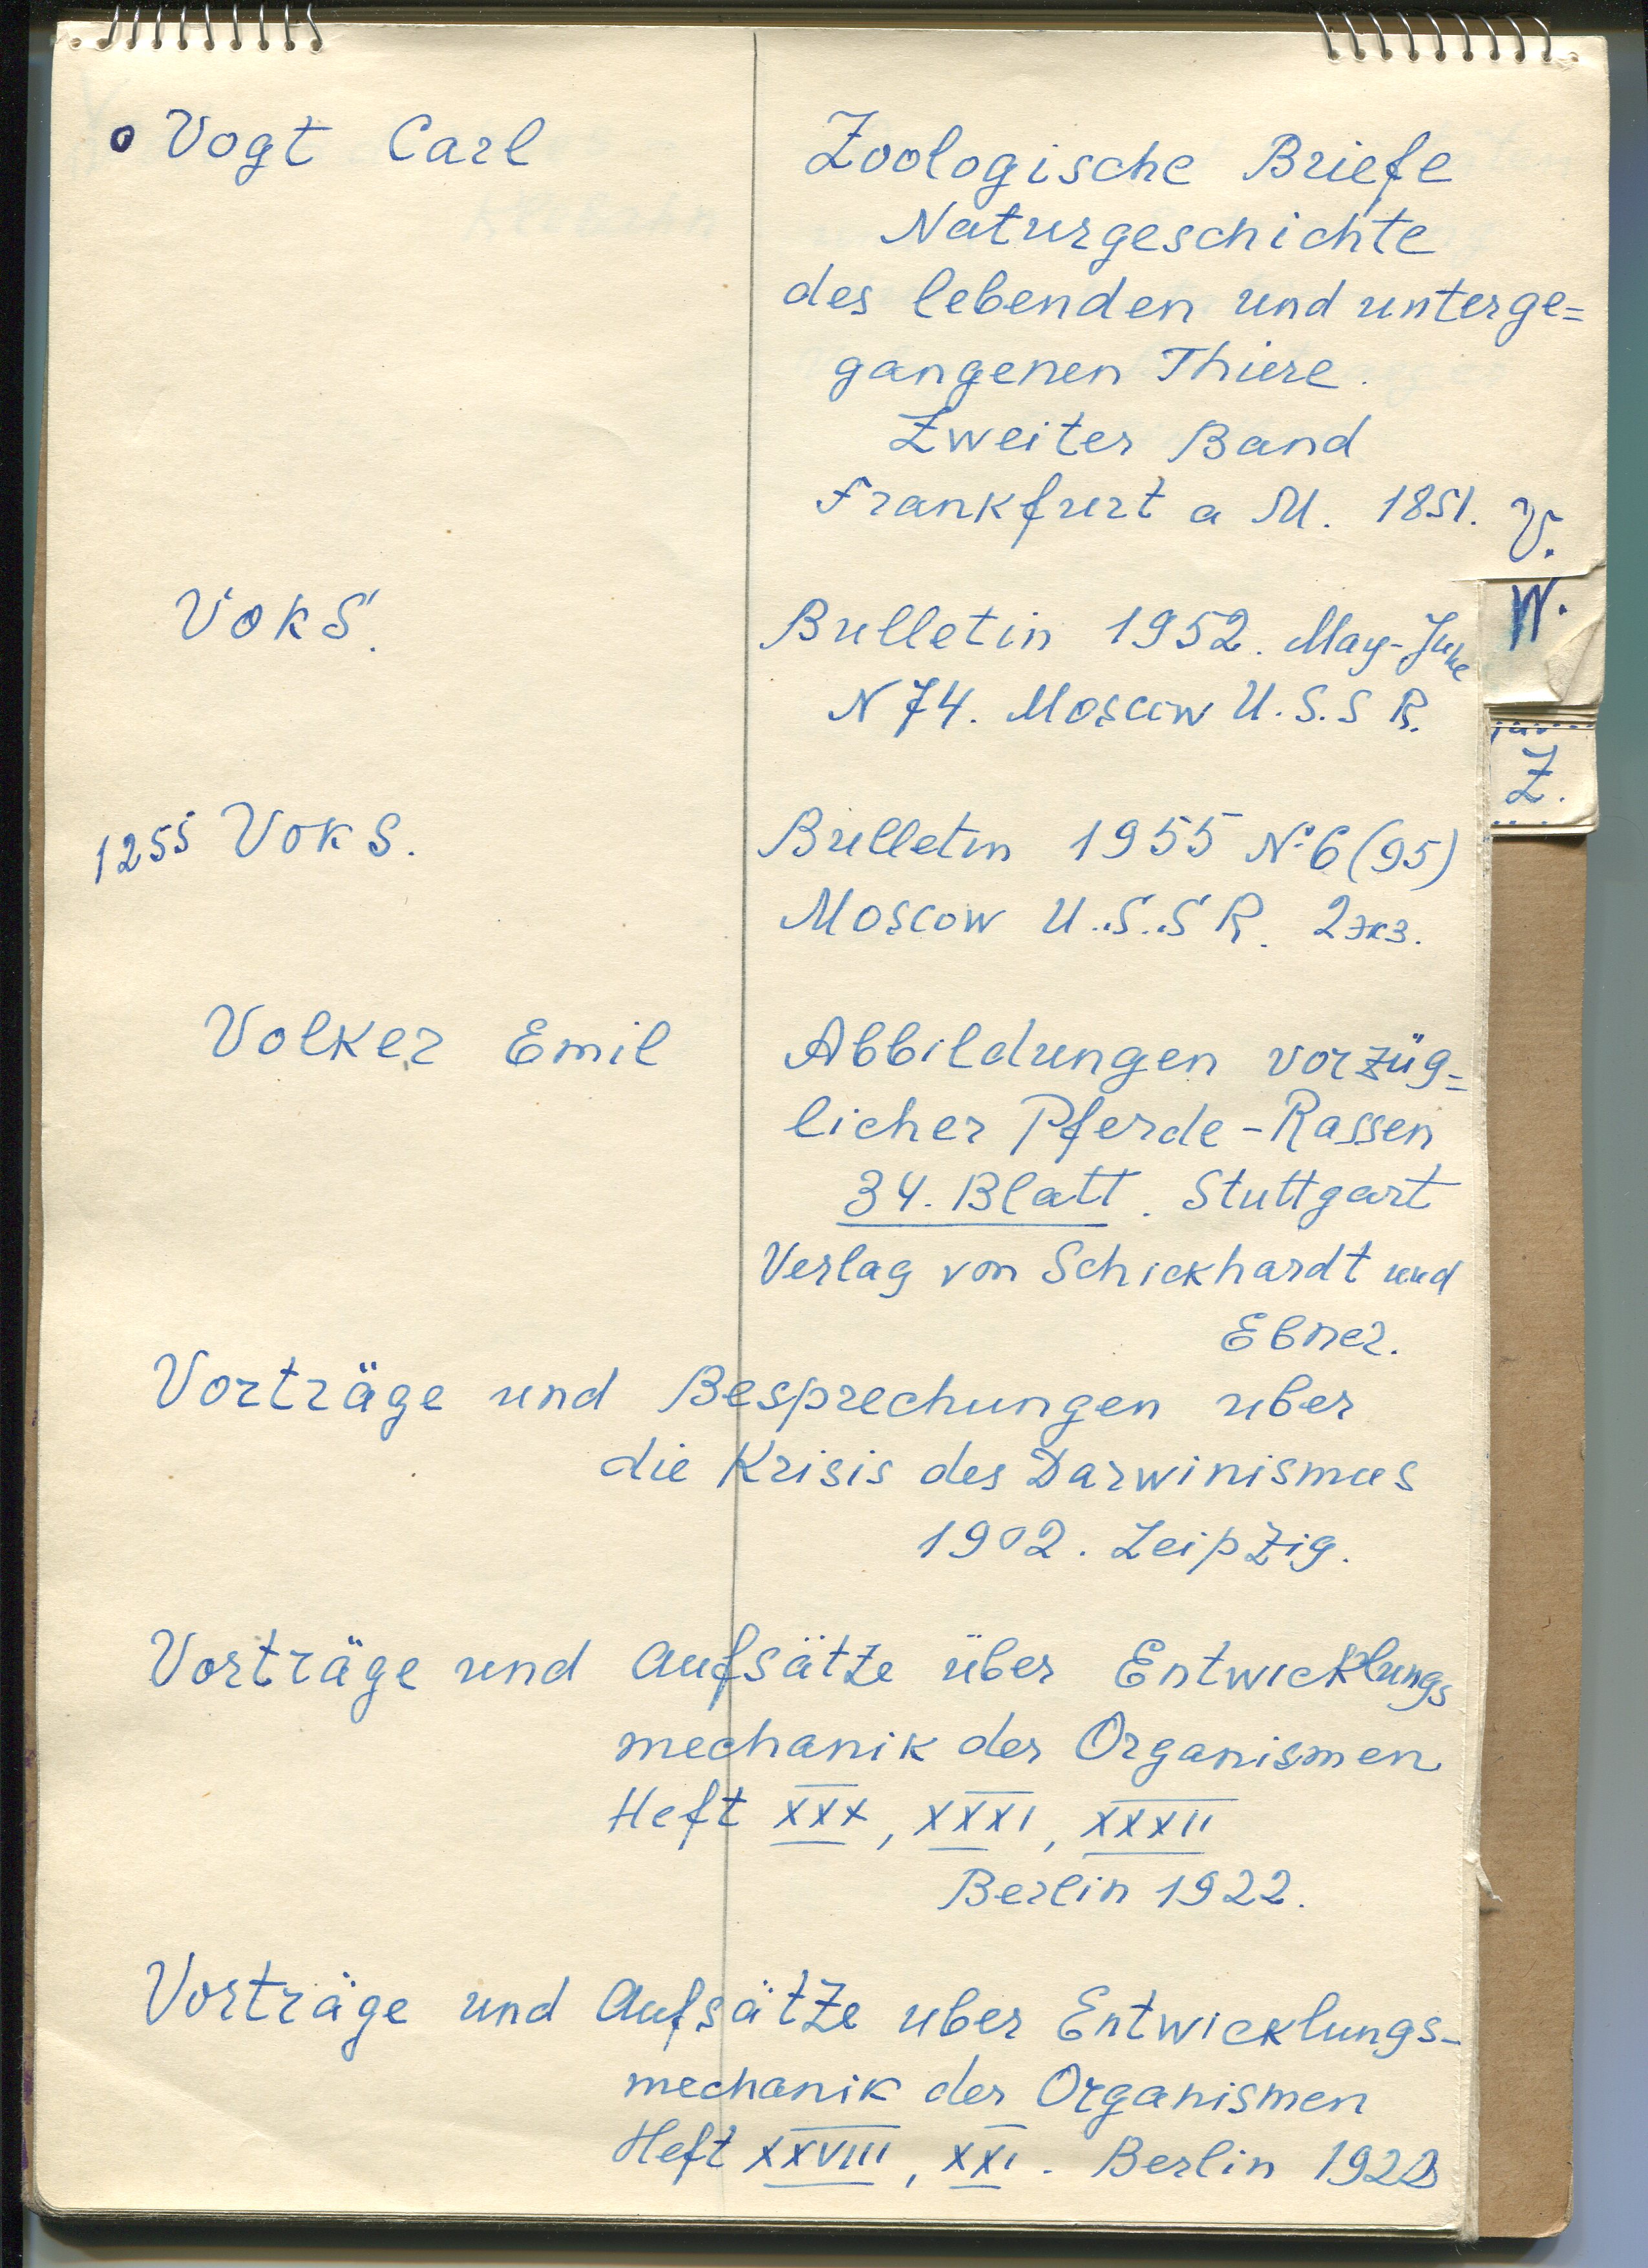 o Vogt Carl
Zoologische Briefe
Naturgeschichte
des lebenden und unterge=
gangenen Thiere.
Zweiter Band
Frankfurt a M. 1851.
V.
W.
Z.
VOKS.
Bulletin 1952. May-June
N 74. Moscow U.S.S R.
1255 VOKS.
Bulletin 1955 № 6 (95)
Moscow U.S.S R. 2 экз.
Volker Emil
Abbildungen vorzüg=
licher Pferde-Rassen
34. Blatt. Stuttgart
Verlag von Schickhardt und
Ebner.
Vorträge und Besprechungen uber
die Krisis des Darwinismus
1902. Leipzig.
Vorträge und Aufsätze über Entwicklungs
mechanik der Organismen
Heft XXX, XXXI, XXXII
Berlin 1922.
Vorträge und Aufsätze uber Entwicklungs-
mechanik der Organismen
Heft XXVIII, XXI. Berlin